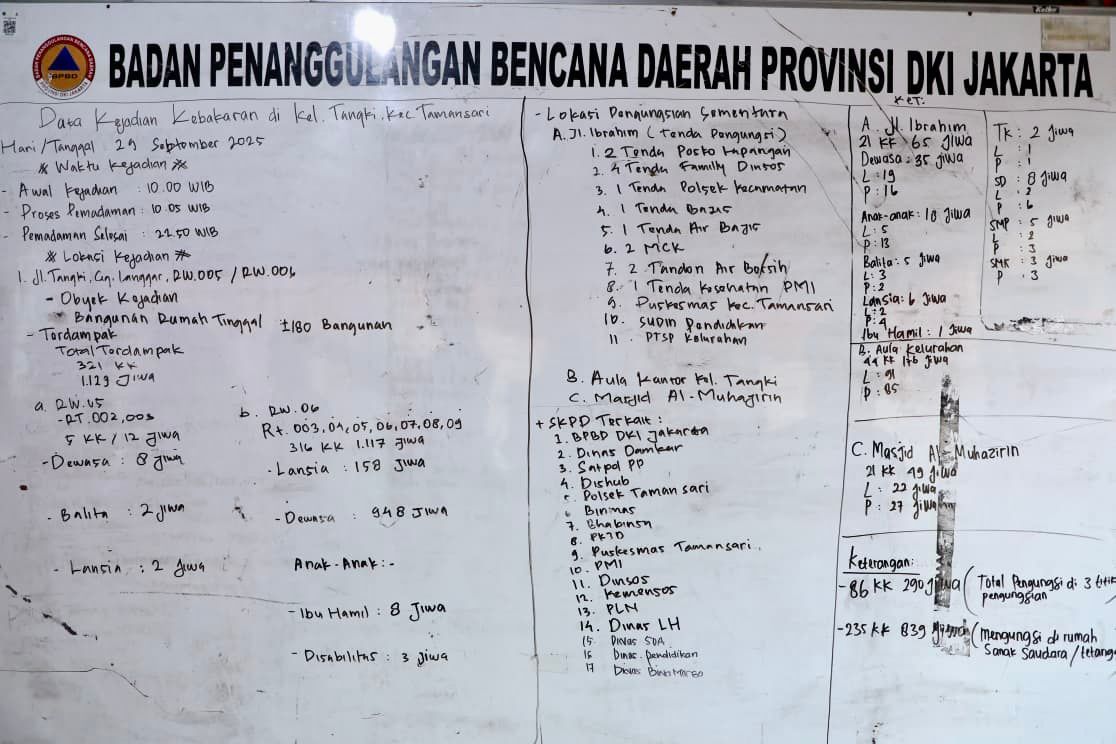 BADAN PENANGGULANGAN BENCANA DAERAH
BPBD
PROVINSI DKI JAKARTA
BADAN PENANGGULANGAN BENCANA DAERAH PROVINSI DKI JAKARTA
Data Kejadian Kebakaran di Kel. Tangki, Kec Tamansari
Hari/Tanggal : 29 September 2025
* Waktu Kejadian *
- Awal Kejadian : 10.00 WIB
- Proses Pemadaman : 10.05 WIB
- Pemadaman Selesai : 22.50 WIB
* Lokasi Kejadian *
1. Jl. Tangki, Gg. Langgar, RW.005 / RW.006
- Obyek Kejadian
* Bangunan Rumah Tinggal ±180 Bangunan
- Terdampak
Total Terdampak
321 KK
1.129 Jiwa
a. RW.05
- RT.002,003
5 KK / 12 Jiwa
- Dewasa : 8 Jiwa
- Balita : 2 Jiwa
- Lansia : 2 Jiwa
b. RW.06
Rt. 003,04,05,06,07,08,09
316 KK 1.117 Jiwa
- Lansia : 158 Jiwa
- Dewasa : 948 Jiwa
Anak-Anak : -
- Ibu Hamil : 8 Jiwa
- Disabilitas : 3 Jiwa
- Lokasi Pengungsian Sementara
A. Jl. Ibrahim (Tenda Pengungsi)
1. 2 Tenda Posko Lapangan
2. 4 Tenda Familly Dinsos
3. 1 Tenda Polsek Kecamatan
4. 1 Tenda Bazis
5. 1 Tenda Air Bazis
6. 2 MCK
7. 2 Tandon Air Bersih
8. 1 Tenda Kesehatan PMI
9. Puskesmas Kec. Tamansari
10. SUDIN Pendidikan
11. PTSP Kelurahan
B. Aula Kantor Kel. Tangki
C. Masjid Al-Muhazirin
+ SKPD Terkait :
1. BPBD DKI Jakarta
2. Dinas Damkar
3. Satpol PP
4. Dishub
5. Polsek Taman sari
6. Binmas
7. Bhabinsa
8. PK7D
9. Puskesmas Tamansari.
10. PMI
11. Dinsos
12. Kemensos
13. PLN
14. Dinas LH
15. Dinas SDA
16. Dinas Pendidikan
17. Dinas Bina Marga
Ket:
A. Jl. Ibrahim
21 KK 65 Jiwa
Dewasa : 35 Jiwa
L : 19
P : 16
Anak-anak : 18 Jiwa
L : 5
P : 13
Balita : 5 Jiwa
L : 3
P : 2
Lansia : 6 Jiwa
L : 2
P : 4
Ibu Hamil : 1 Jiwa
TK : 2 Jiwa
L : 1
P : 1
SD : 8 Jiwa
L : 2
P : 6
SMP : 5 Jiwa
L : 2
P : 3
SMK : 3 Jiwa
P : 3
B. Aula Kelurahan
44 KK 176 Jiwa
L : 91
P : 85
C. Masjid Al-Muhazirin
21 KK 49 Jiwa
L : 22 Jiwa
P : 27 Jiwa
Keterangan :
- 86 KK 290 Jiwa (Total Pengungsi di 3 titik
pengungsian
- 235 KK 839 Jiwa (mengungsi di rumah
Sanak Saudara/tetang